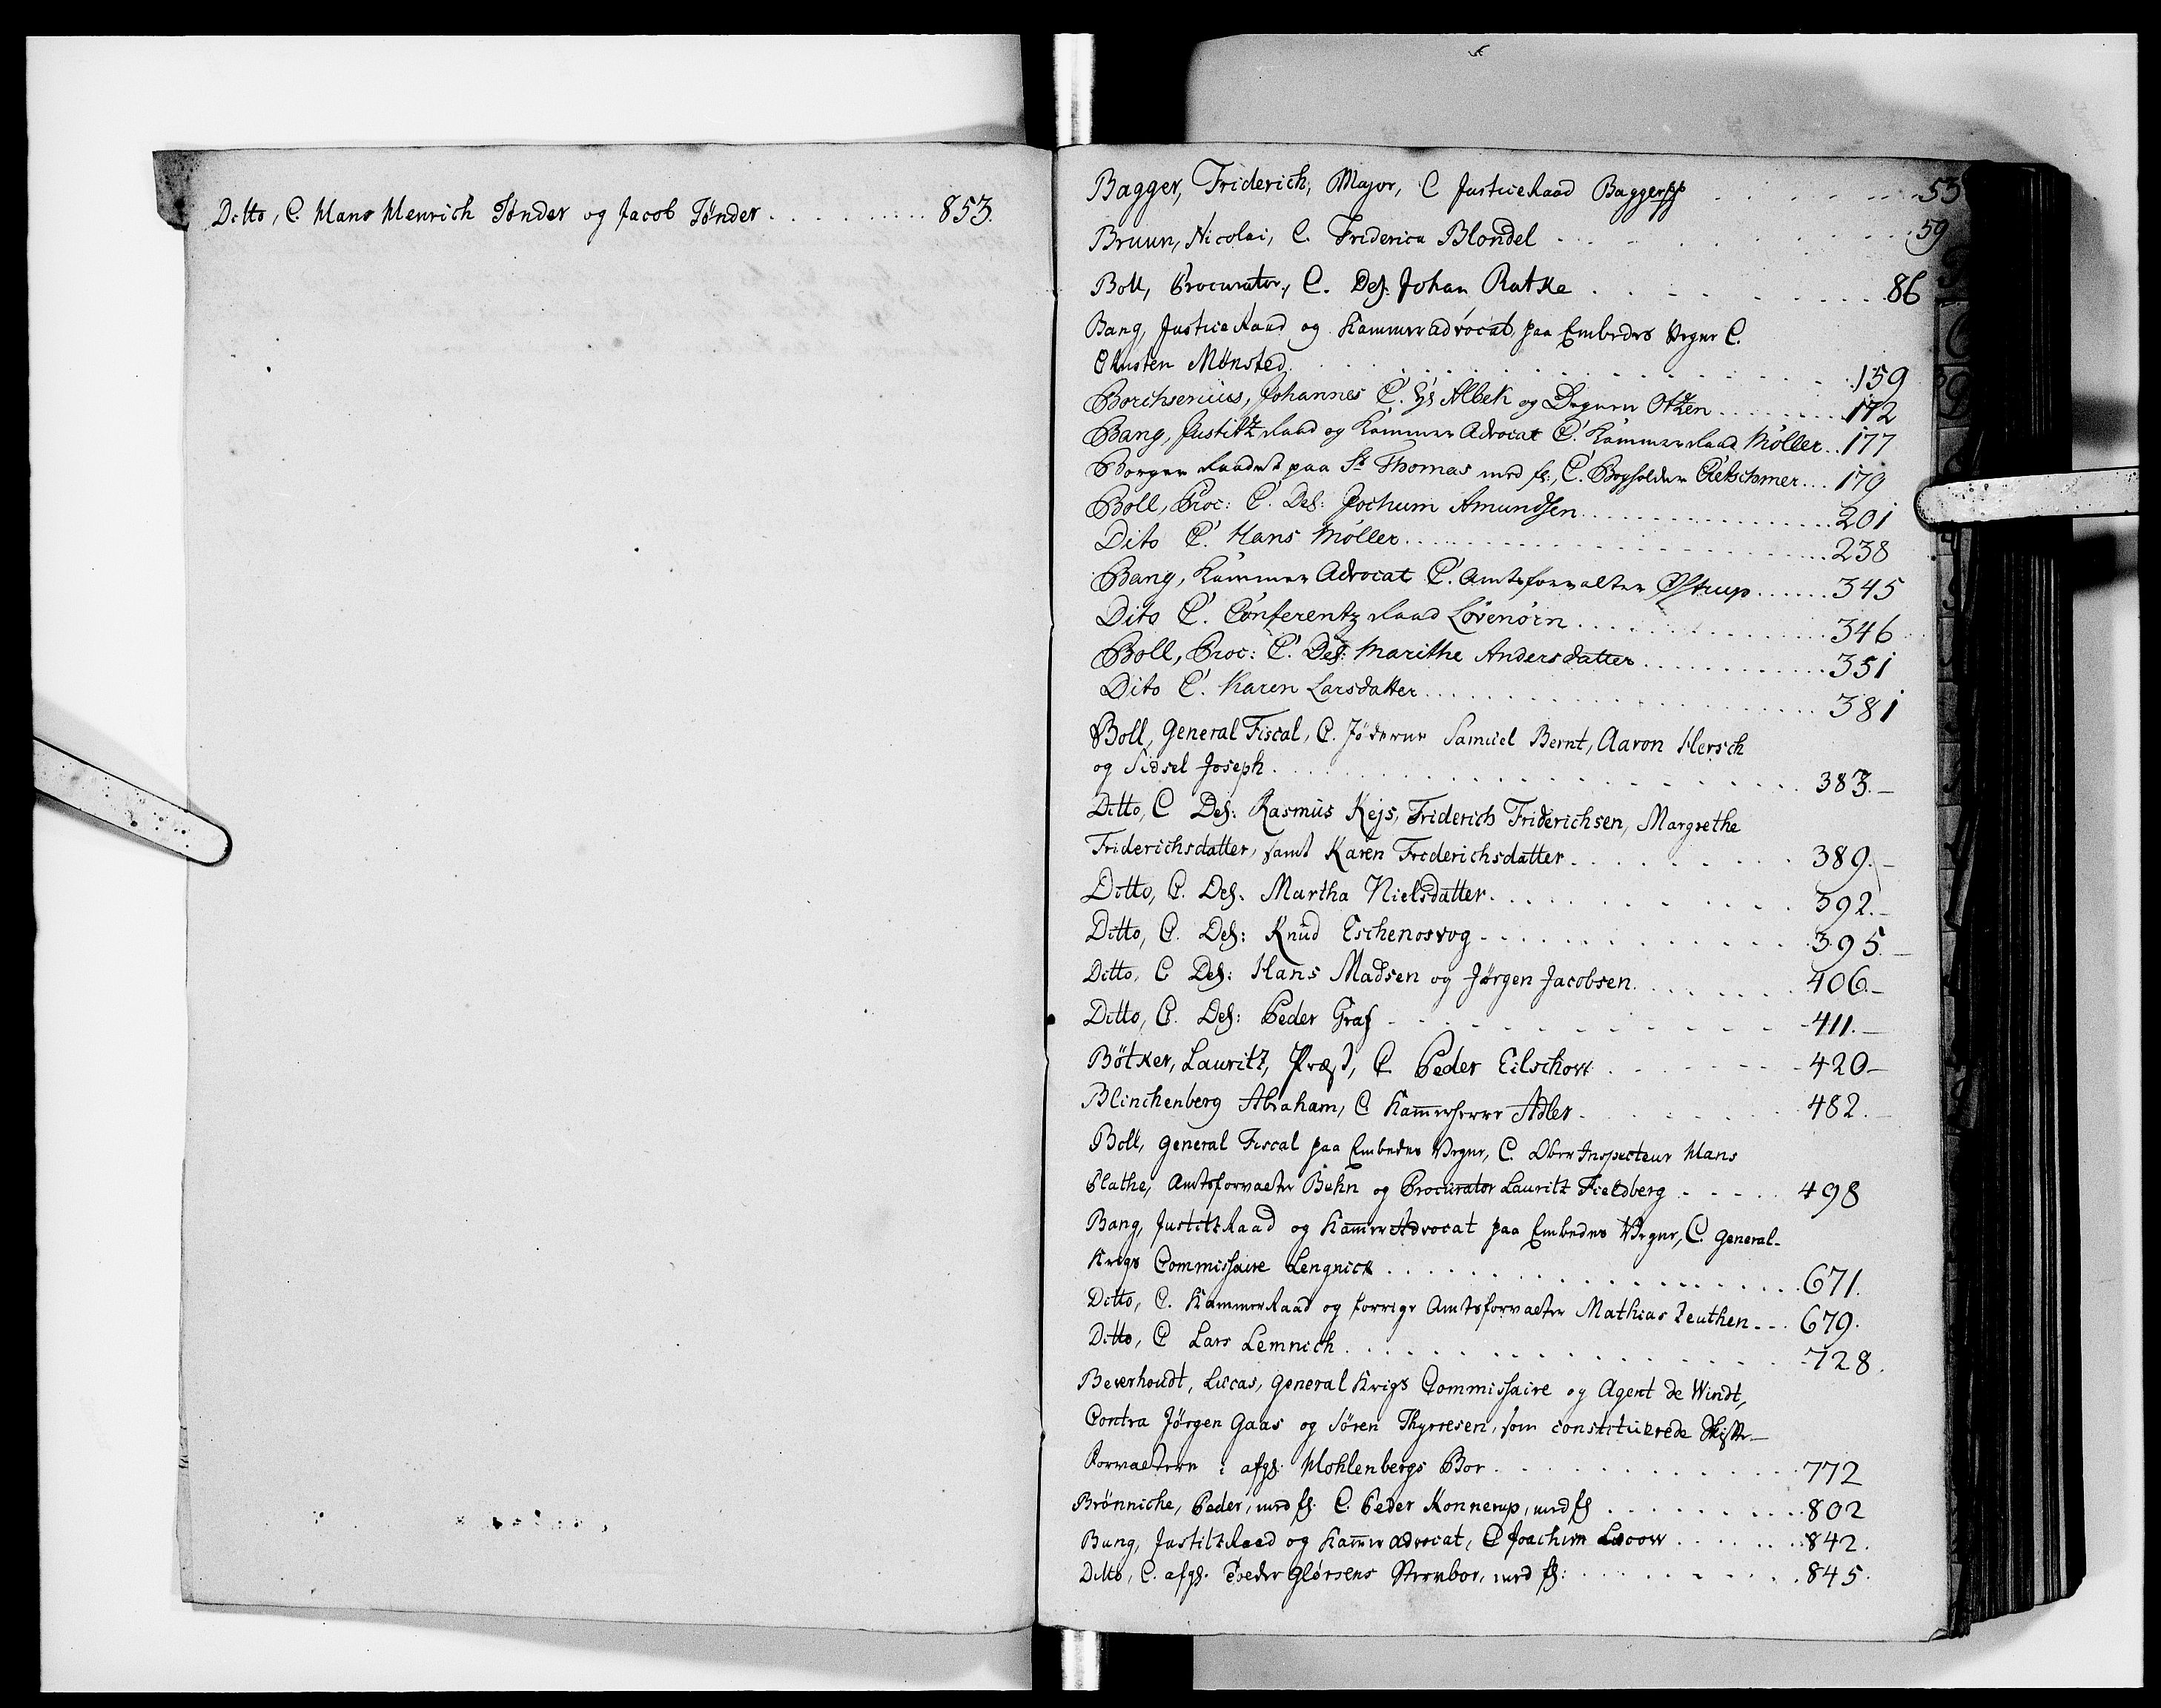 Ditto, C. Hans Henrich Tønder og Jacob Tønder . . . . . . . . . . . 853.
Bagger, Friderich, Major, C JusticeRaad Bagger . . . . . . . 53
Bruun, Nicolai, C. Friderica Blondel . . . . . . . . . . . 59
Boll, Procurator, C. Del: Johan Ratke . . . . . . . . . 86
Bang, JusticeRaad og Kammeradvocat, paa Embedes Vegne C.
Christen Mønsted . . . . . . . . . . . . . . . . . 159
Borchsenius, Johannes C. Albek og Otzen . . . . . . . . 172
Bang, JustitzRaad og Kammer Advocat C. KammerRaad Möller . . 177
Borger Raadet paa St Thomas med fl:, C. Bogholder Cretschmer . . . 179
Boll, Proc: C. Del: Jochum Amundsen . . . . . . . . . . . . . . . . 201
Dito C. Hans Möller . . . . . . . . . . . . . . . . . . . 238
Bang, Kammer Advocat C. Amtsforvalter Østrup . . . . . . 345
Dito C. Conferentz Raad Lövenörn . . . . . . . . . . . . . 346
Boll, Proc: C. Del: Marithe Andersdatter . . . . . . . . . . . 351
Dito C. Karen Larsdatter . . . . . . . . . . . . . . . . . 381
Boll, General Fiscal, C. Jøderne Samuel Bernt, Aaron Hersch
og Sidsel Joseph . . . . . . . . . . . . . . . . . . . 383.–
Ditto, C Del: Rasmus Kejs, Friderich Friderichsen, Margrethe
Friderichsdatter, samt Karen Frederichsdatter . . . . . . . . . 389.–
Ditto, C. Del. Martha Nielsdatter . . . . . . . . . . . 392.–
Ditto, C. Del: Knud Eschenosvog . . . . . . . . . . . . 395.–
Ditto, C Del: Hans Madsen og Jørgen Jacobsen . . . . . . . 406.–
Ditto, C. Del: Peder Graf . . . . . . . . . . . . . . 411.–
Bötker, Lauritz, Præst, C. Peder Eilschow . . . . . . . . 420–
Blinchenberg Abraham, C Kammerherre Adler . . . . . . . . 482.–
Boll, General Fiscal paa Embedes Vegne, C. Ober Inspecteur Hans
Plathe, Amtsforvalter Behn og Procurator Lauritz Fieldberg . . . . . 498
Bang, JustitzRaad og KammerAdvocat paa Embedes Vegne, C. General-
Krigs Commissaire Lengnick . . . . . . . . . . . . . . . . 671.
Ditto, C. KammerRaad og forrige Amtsforvalter Mathias Zeuthen . . . 679.
Ditto, C Lars Lemnich . . . . . . . . . . . . . . . . . 728.
Beverhoudt, Lucas, General Krigs Commissaire og Agent de Windt,
Contra Jørgen Gaas og Sören Thyrresen, som constituerede Skifte-
forvaltere i afg: Mohlenbergs Boe . . . . . . . . . . . . 772
Brønniche, Peder, med fl. C. Peder Konnerup, med fl . . . . . . . . 802
Bang, JustitzRaad og Kammeradvocat, C Joachim . . . . . . 842.
Ditto, C. afg: Peder Glørsens Sterboe, med fl: . . . . . . . . . . 845.